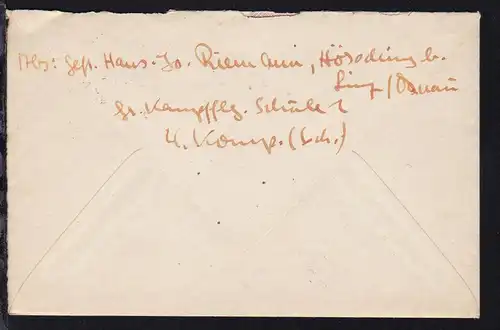 Abs: Gefr. Hans-Jo. Riemann, Hörsching b.
Linz/Donau
Gr. Kampfflg. Schule 2
4. Komp. (Sch.)